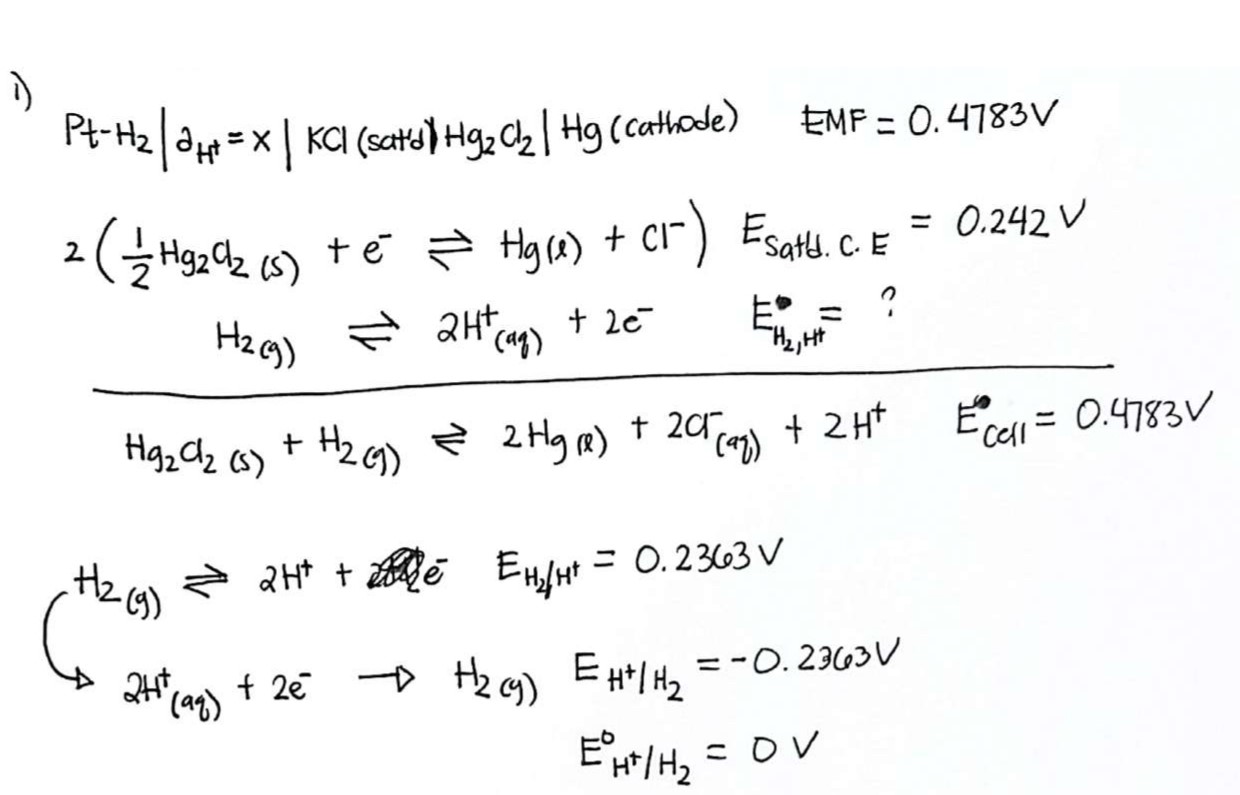 1)
Pt-H₂ | a_H⁺ = x | KCl (satd) Hg₂Cl₂ | Hg (cathode) EMF = 0.4783V
2 (½ Hg₂Cl₂ (s) + e⁻ ⇌ Hg(l) + Cl⁻) E_Satd. C. E = 0.242 V
H₂ (g) ⇌ 2H⁺ (aq) + 2e⁻ E_H₂,H⁺ = ?
Hg₂Cl₂ (s) + H₂ (g) ⇌ 2Hg (l) + 2Cl⁻ (aq) + 2H⁺ E_cell = 0.4783V
H₂ (g) ⇌ 2H⁺ + e⁻ E_H₂/H⁺ = 0.2363V
2H⁺ (aq) + 2e⁻ → H₂ (g) E_H⁺/H₂ = -0.2363V
E⁰_H⁺/H₂ = 0 V